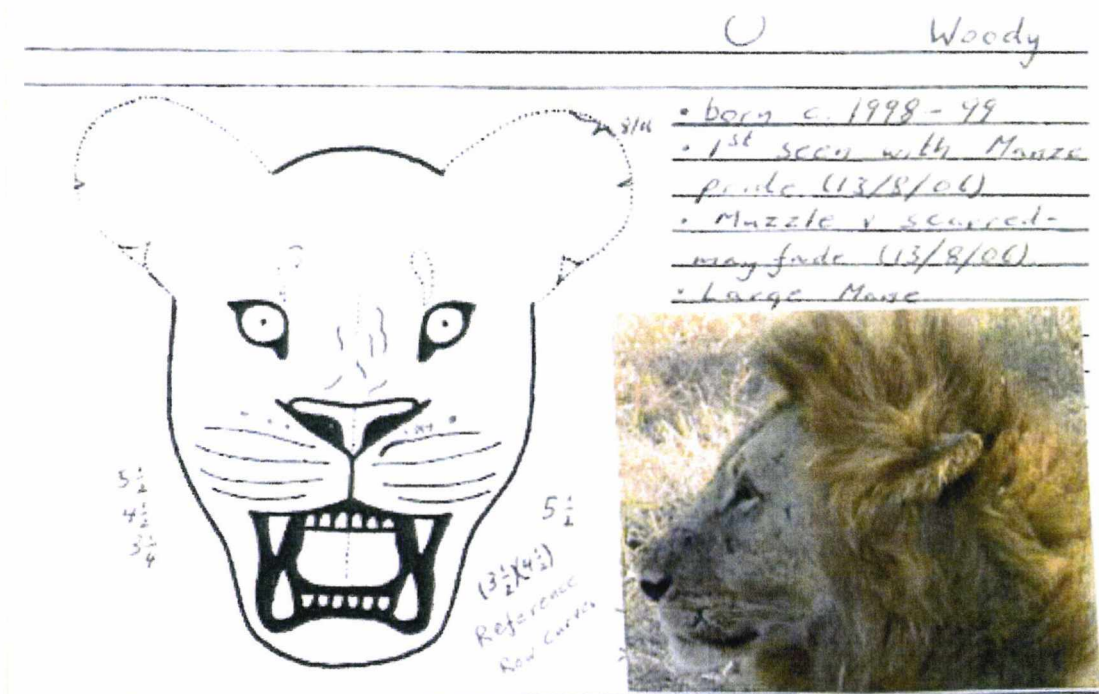 Woody
8/06
• born c. 1998-99
• 1st seen with Manze
pride (13/8/06)
• Muzzle v scarred-
may fade (13/8/06)
• Large Mane
5 1/2
4 1/2
5 1/2
(3 1/2)(4 1/2)
Reference
Row curves